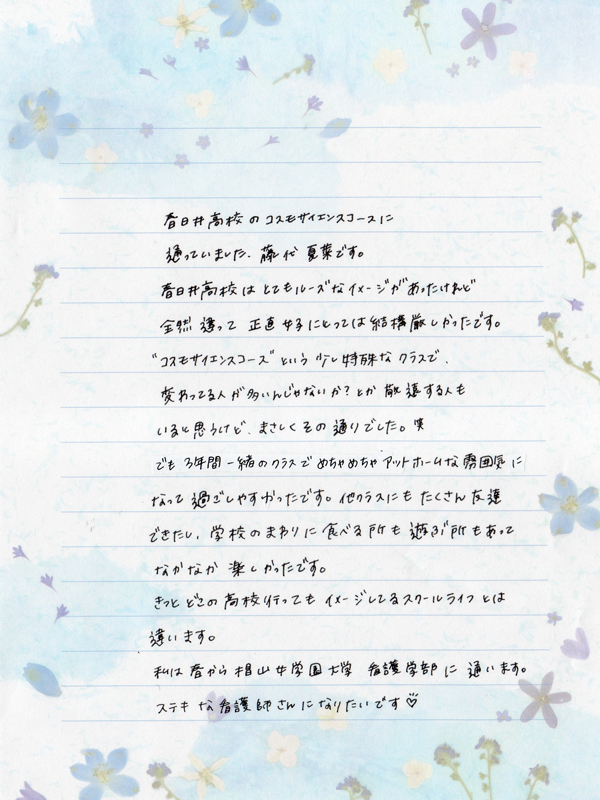 春日井高校のコスモサイエンスコースに
通っていました、藤代 夏葉です。
春日井高校はとてもルーズなイメージがあったけれど
全然違って 正直女子にとっては結構厳しかったです。
"コスモサイエンスコース"という少し特殊なクラスで、
変わってる人が多いんじゃないか?とか敬遠する人も
いると思うけど、まさしくその通りでした。笑
でも3年間一緒のクラスでめちゃめちゃアットホームな雰囲気に
なって過ごしやすかったです。他クラスにもたくさん友達
できたし、学校のまわりに食べる所も遊ぶ所もあって
なかなか楽しかったです。
きっとどこの高校行ってもイメージしてるスクールライフとは
違います。
私は春から椙山女学園大学 看護学部に通います。
ステキな看護師さんになりたいです♡